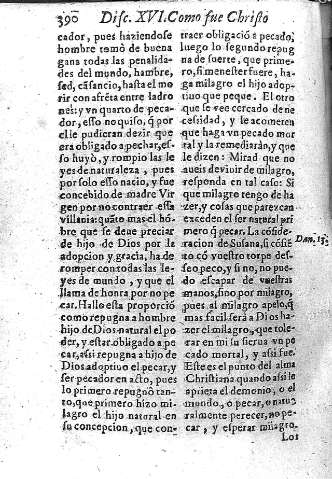 390 Disc. XVI. Como fue Christo
cador, pues haziendose
hombre tomò de buena
gana todas las penalida-
des del mundo, hambre,
sed, cãsancio, hasta el mo
rir con afrẽta entre ladro
nes: y vn quarto de peca-
dor, esso no quiso, q̃ por
el le pudieran dezir que
era obligado a pechar, es-
so huyò, y rompio las le
yes de naturaleza, pues
por solo esso nacio, y fue
concebido de madre Vir
gen por no contraer essa
villania: quãto mas el hõ-
bre que se deue preciar
de hijo de Dios por la
adopcion y gracia, ha de
romper con todas las le-
yes de mundo, y que el
llama de honra por no pe
car. Hallo esta proporciõ
como repugna a hombre
hijo de Dios natural el po
der, y estar obligado a pe
car, assi repugna a hijo de
Dios adoptiuo el pecar, y
ser pecador en acto, pues
lo primero repugnò tan-
to, que primero hizo mi-
lagro el hijo natural en
su concepcion, que con-
traer obligació a pecado,
luego lo segundo repug
na de suerte, que prime-
ro, si menester fuere, ha-
ga milagro el hijo adop-
tiuo que peque. El otro
que se vee cercado de ne
cessidad, y le acometen
que haga vn pecado mor
tal y la remediaràn, y que
le dizen: Mirad que no
aueis de viuir de milagro,
responda en tal caso: Si
que milagro tengo de ha
zer, y cosas que parezcan
exceden el ser natural pri
mero q̃ pecar. La cõside-
racion de Susana, si cõsiẽ
to cõ vuestro torpe des-
seo peco, y si no, no pue-
do escapar de vuestras
manos, sino por milagro,
pues al milagro apelo, q̃
mas facil serà a Dios ha-
zer el milagro, que tole-
rar en mi su sierua vn pe
cado mortal, y assi fue.
Este es el punto del alma
Christiana quando assi le
aprieta el demonio, o el
mundo, o pecar, o natu
ralmente perecer, no pe-
car, y esperar milagro.
Dan. 13.
Los